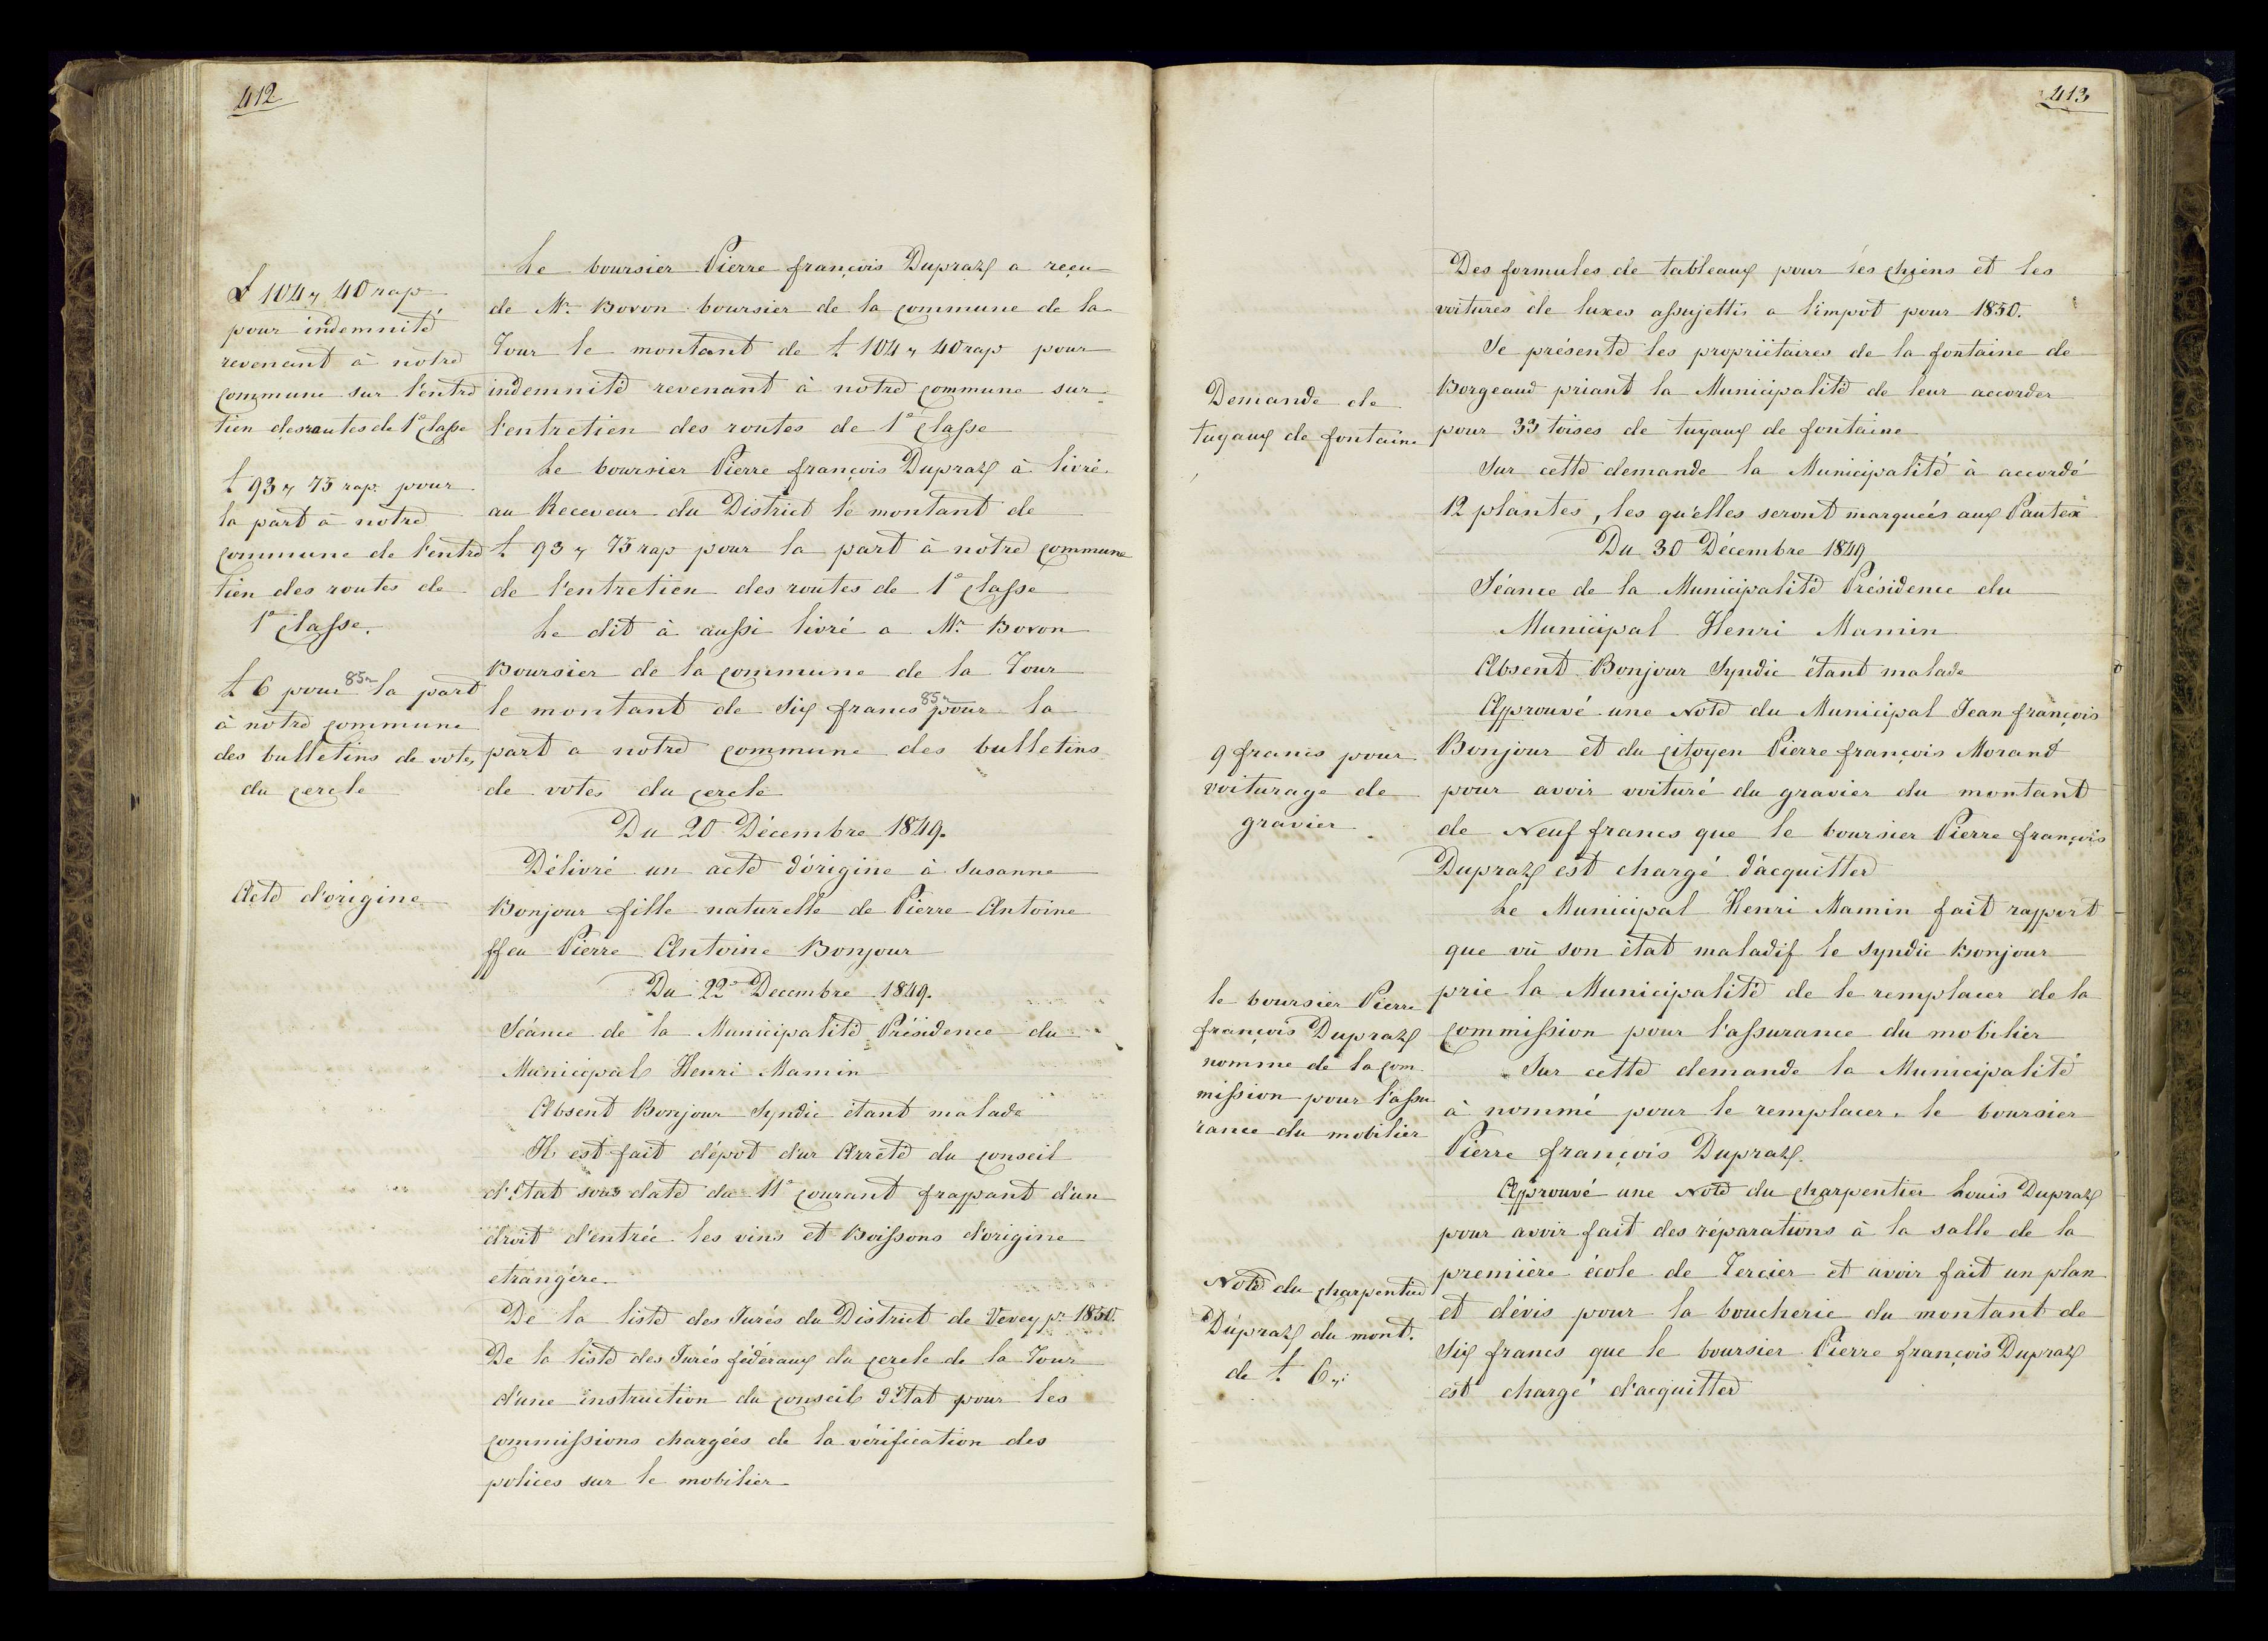 412
£ 104 „ 40 rap
pour indemnité
revenant à notre
commune sur l'entre
tien des routes de 1e classe
£ 93 „ 75 rap. pour
la part à notre
commune de l'entre
tien des routes de
1e classe.
£ 6 pour 85 r la part
à notre commune
des bulletins de votes
du cercle
Acte d'origine
Le boursier Pierre françois Dupraz a reçu
de Mr Bovon boursier de la commune de la
Tour le montant de £ 104 „ 40 rap pour
indemnité revenant à notre commune sur
l'entretien des routes de 1e classe
Le boursier Pierre françois Dupraz à livré
au Receveur du District le montant de
£ 93 „ 75 rap pour la part à notre commune
de l'entretien des routes de 1e classe
Le dit à aussi livré a Mr Bovon
Boursier de la commune de la Tour
le montant de Six francs 85 r pour la
part a notre commune des bulletins
de votes du cercle
Du 20 Décembre 1849.
Délivré un acte d'origine à Susanne
Bonjour fille naturelle de Pierre Antoine
ffeu Pierre Antoine Bonjour
Du 22e Decembre 1849.
Séance de la Municipalité Présidence du
Municipal Henri Mamin
Absent Bonjour Syndic étant malade
Il est fait dépot d'un Arreté du conseil
d'Etat sous date du 11e courant frappant d'un
droit d'entrée les vins et Boissons d'origine
etrangère.
De la liste des Jurés du District de Vevey pr 1850.
De la liste des Jurés fédéraux du cercle de la Tour
d'une instruction du conseil d'Etat pour les
commissions chargées de la vérification des
polices sur le mobilier
413
Demande de
tuyaux de fontaine
9 francs pour
voiturage de
gravier
le boursier Pierre
françois Dupraz
nomme de la com
mission pour l'assu
rance du mobilier
Note du charpentier
Dupraz du mont.
de £ 6 „
Des formules de tableaux pour les chiens et les
voitures de luxes assujettis a l'impot pour 1850.
Se présente les propriétaires de la fontaine de
Borgeaud priant la Municipalité de leur accorder
pour 33 toises de tuyaux de fontaine
Sur cette demande la Municipalité à accordé
12 plantes, les qu'elles seront marqueés aux Pautex
Du 30 Décembre 1849
Séance de la Municipalité Présidence du
Municipal Henri Mamin
Absent Bonjour Syndic étant malade
Approuvé une Note du Municipal Jean françois
Bonjour et du citoyen Pierre françois Morand
pour avoir voituré du gravier du montant
de Neuf francs que le boursier Pierre françois
Dupraz est chargé d'acquitter
Le Municipal Henri Mamin fait rapport
que vû son état maladif le Syndic Bonjour
prie la Municipalité de le remplacer de la
commission pour l'assurance du mobilier
Sur cette demande la Municipalité
à nommé pour le remplacer, le boursier
Pierre françois Dupraz.
Approuvé une Note du charpentier Louis Dupraz
pour avoir fait des réparations à la salle de la
première école de Tercier et avoir fait un plan
et dévis pour la boucherie du montant de
Six francs que le boursier Pierre françois Dupraz
est chargé d'acquitter